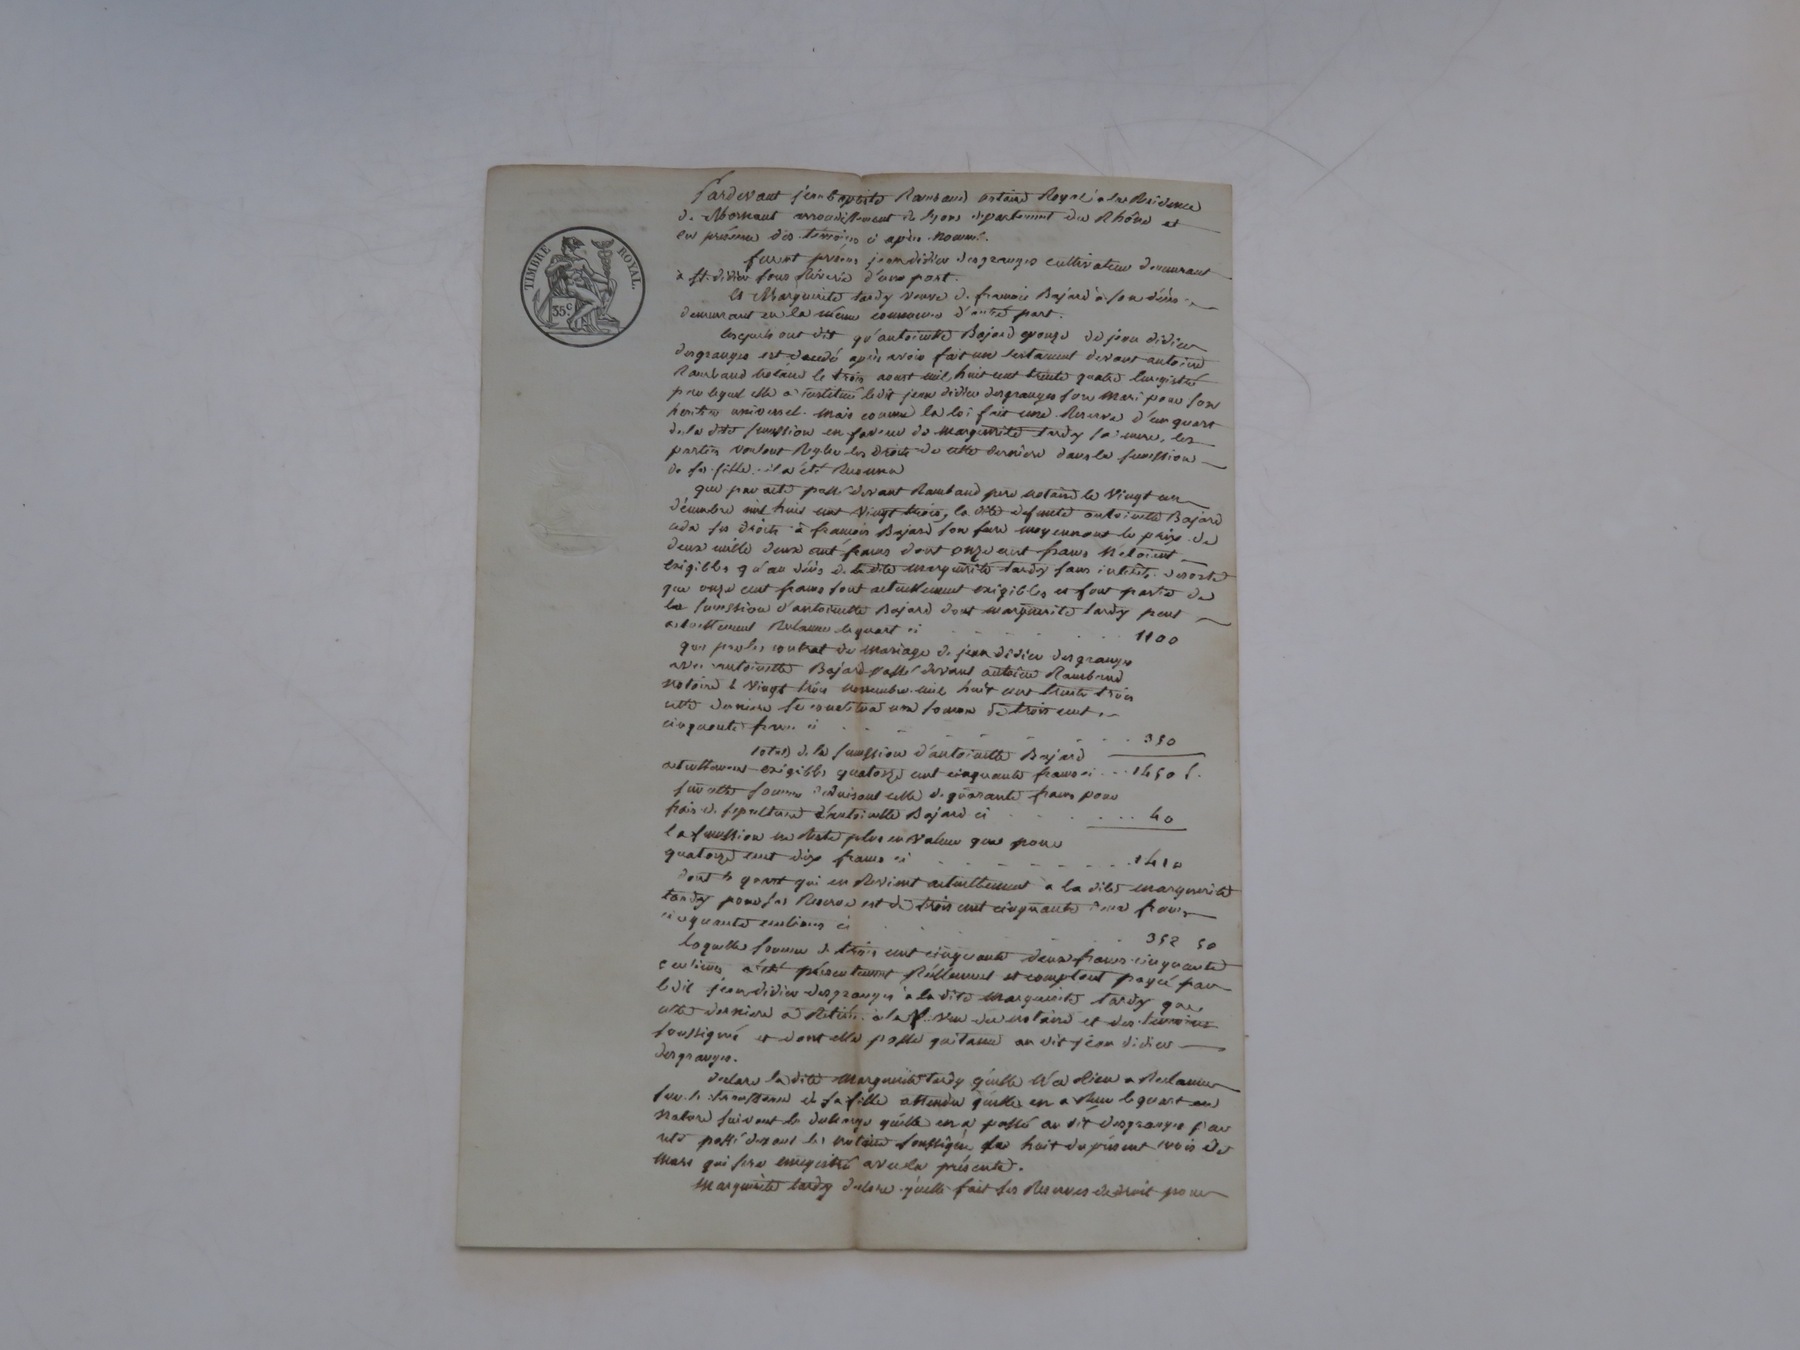 TIMBRE ROYAL.
35c
Pardevant jean baptiste Rambaud notaire Royal à la Résidence
de Mornant arrondissement de Lyon département du Rhône et
en présence des témoins ci après nommé.
furent présens jean didier desgranges cultivateur demeurant
à st. didier sous Riverie d'une part.
Et Marguerite tardy veuve de francois Bajard à son décès
demeurant en la même commune d'autre part.
Lesquels ont dit qu'antoinette Bajard epouse de jean didier
desgranges est décédé après avoir fait un testament devant antoine
Rambaud Notaire le trois aoust mil huit cent trente quatre Enregistré
par lequel elle a institué ledit jean didier desgranges son Mari pour son
heritier universel. Mais comme la loi fait une Reserve d'un quart
de la dite succession en faveur de Marguerite tardy sa mere, les
parties voulant Regler les droits de cette derniere dans la succession
de sa fille. il a été Reconnu
que par acte passé devant Rambaud pere notaire le Vingt un
décembre mil huit cent Vingt trois, la dite defunte antoinette Bajard
ceda ses droits à francois Bajard son frere moyennant le prix de
deux mille deux cent francs dont onze cent francs n'etoient
exigibles qu'au décès de la dite marguerite tardy sans intérêts. desorte
que onze cent francs sont actuellement exigibles et font partie de
la succession d'antoinette Bajard dont marguerite tardy peut
actuellement Reclamer le quart ci 1100
que par les contrat de mariage de jean didier desgranges
avec antoinette Bajard passé devant antoine Rambaud
notaire le Vingt trois novembre mil huit cent trente trois
cette derniere se constitua une somme de trois cent
cinquante francs ci 350
total de la succession d'antoinette Bajard
actuellement exigibles quatorze cent cinquante francs ci 1450 f.
sur cette somme deduisant celle de quarante francs pour
frais de sepulture d'antoinette Bajard ci 40
la succession ne Reste plus en Valeur que pour
quatorze cent dix francs ci 1410
dont le quart qui en Revient actuellement a la dite marguerite
tardy pour sa Reserve est de trois cent cinquante deux francs
cinquante centimes ci 352 50
Laquelle somme de trois cent cinquante deux francs cinquante
centimes a été présentement Réellement et comptant payée par
ledit jean didier desgranges à la dite marguerite tardy que
cette derniere a Retiré à la vue du notaire et des temoins
soussigné et dont elle passe quitance au dit jean didier
desgranges.
declare la dite Marguerite tardy qu'elle N'a Rien a Reclamer
sur le trousseau de sa fille attendu qu'elle en a Reçu le quart en
Nature suivant la qu'elle en a passé au dit desgranges par
acte passé devant les notaire soussigné le huit du présent mois de
Mars qui sera enregistré avec la présente.
Marguerite tardy declare qu'elle fait ses Reserves de droit pour